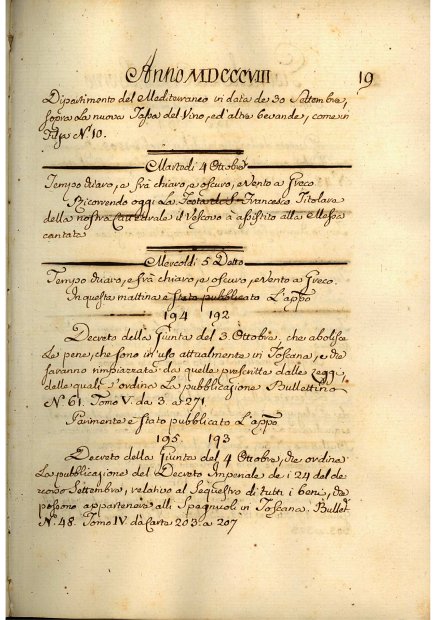 Anno MDCCCVIII
19
Dipartimento del Mediterraneo in data de 30 Settembre,
sopra la nuova Tassa del Vino, ed'altre bevande, come in
Filza N.° 10.
Martedì 4 Ottobre
Tempo chiaro, e frà chiaro, e oscuro, e vento a Greco
Ricorrendo oggi La Festa di S. Francesco Titolare
della nostra Cattedrale il Vescovo à assistito alla Messa
cantata
Mercoldì 5 Detto
Tempo chiaro, e frà chiaro, e oscuro, e vento a Greco.
In questa mattina e stato pubblicato L'appo
194 192
Decreto della Giunta del 3. Ottobre, che abolisce
Le pene, che sono in'uso attualmente in Toscana, e che
saranno rimpiazzate da quelle prescritte dalle Leggi,
delle quali s'ordina La pubblicazione Bullettino
N.° 61. Tomo V. da 3 a 271
Parimente e stato pubblicato L'appo
195. 193
Decreto della Giunta del 4 Ottobre, che ordina
La pubblicazione del Decreto Imperiale de i 24 del de
corso Settembre, relativo al sequestro di tutti i beni, che
possono appartenere alli Spagnuoli in Toscana. Bullet.
N.° 48. Tomo IV. da Carte 203. a 207